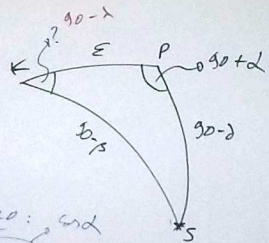 ? 90-λ
ε
P
90+α
90-β
90-δ
S
cosα